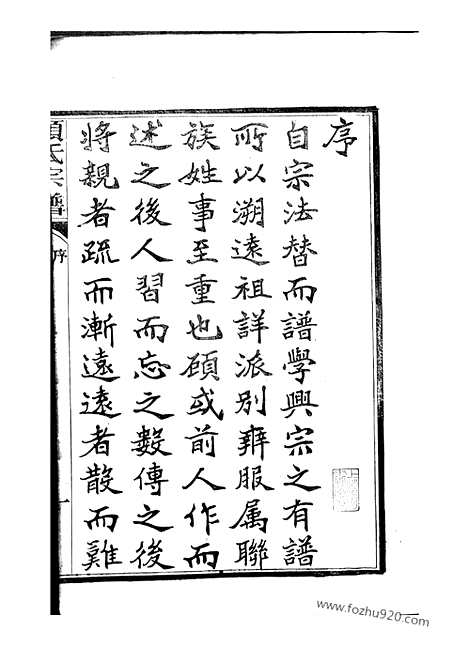 序
自宗法替而譜學興宗之有譜
所以溯遠祖詳派別辨服属聯
族姓事至重也頋或前人作而
述之後人習而忘之數傳之後
將親者疏而漸遠遠者散而難
氏宗譜
序
一
www.fozhu920.com